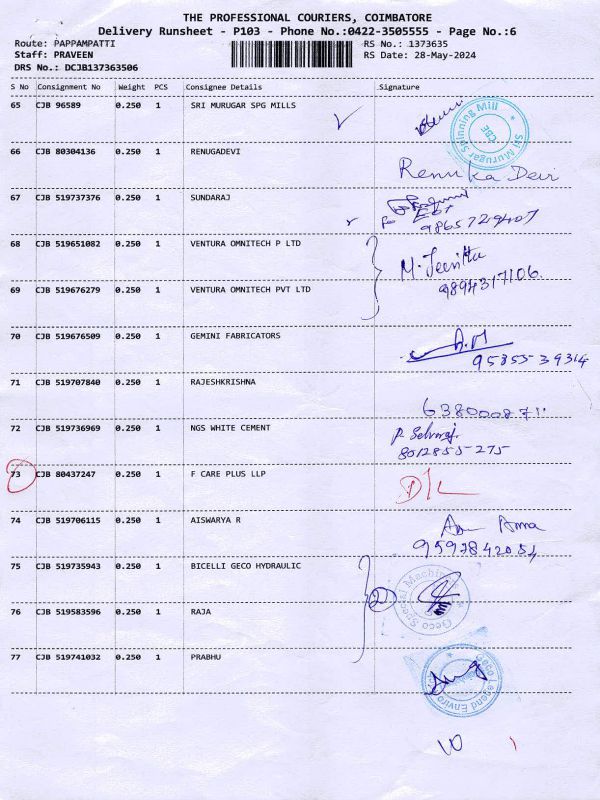 THE PROFESSIONAL COURIERS, COIMBATORE
Delivery Runsheet - P103 - Phone No.:0422-3505555 - Page No.:6
Route: PAPPAMPATTI RS No.: 1373635
Staff: PRAVEEN RS Date: 28-May-2024
DRS No.: DCJB137363506
S No Consignment No Weight PCS Consignee Details Signature
65 CJB 96589 0.250 1 SRI MURUGAR SPG MILLS
Sri Murugar Spinning Mill CBE
66 CJB 80304136 0.250 1 RENUGADEVI
Renuka Devi
67 CJB 519737376 0.250 1 SUNDARAJ
9865729407
68 CJB 519651082 0.250 1 VENTURA OMNITECH P LTD
M. Jeevitha
9894317106
69 CJB 519676279 0.250 1 VENTURA OMNITECH PVT LTD
70 CJB 519676509 0.250 1 GEMINI FABRICATORS
A.M
95855 39314
71 CJB 519707840 0.250 1 RAJESHKRISHNA
72 CJB 519736969 0.250 1 NGS WHITE CEMENT
P. Selvraj
8012855-275
73 CJB 80437247 0.250 1 F CARE PLUS LLP
D/L
74 CJB 519706115 0.250 1 AISWARYA R
75 CJB 519735943 0.250 1 BICELLI GECO HYDRAULIC
2
76 CJB 519583596 0.250 1 RAJA
77 CJB 519741032 0.250 1 PRABHU
10